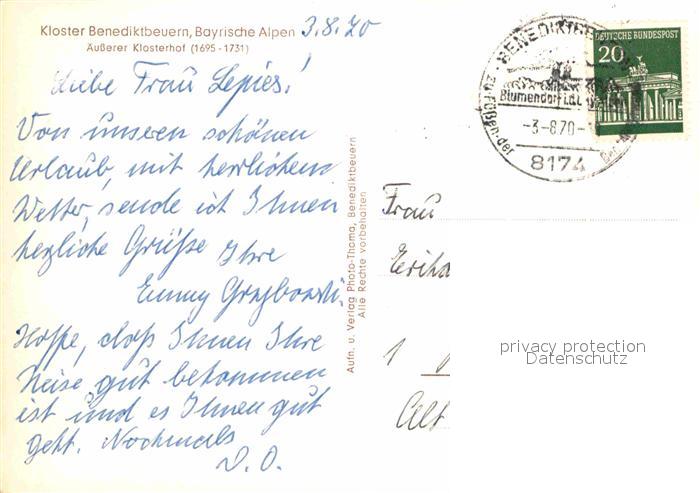 Kloster Benediktbeuern, Bayrische Alpen
Äußerer Klosterhof (1695-1731)
3.8.70
Liebe Frau Lepies!
Von unseren schönen
Urlaub, mit herrlichem
Wetter, sende ich Ihnen
herzliche Grüße Ihre
Emmy Grzybowski.
Hoffe, daß Ihnen Ihre
Reise gut bekommen
ist und es Ihnen gut
geht. Nochmals
D. O.
Aufn. u. Verlag Photo-Thoma, Benediktbeuern
Alle Rechte vorbehalten
DEUTSCHE BUNDESPOST
20
BENEDIKTBE
Blumendorf i.d.
zu Füßen der
-3-8.70-
8174
Frau
Erika
1
Alt
privacy protection
Datenschutz